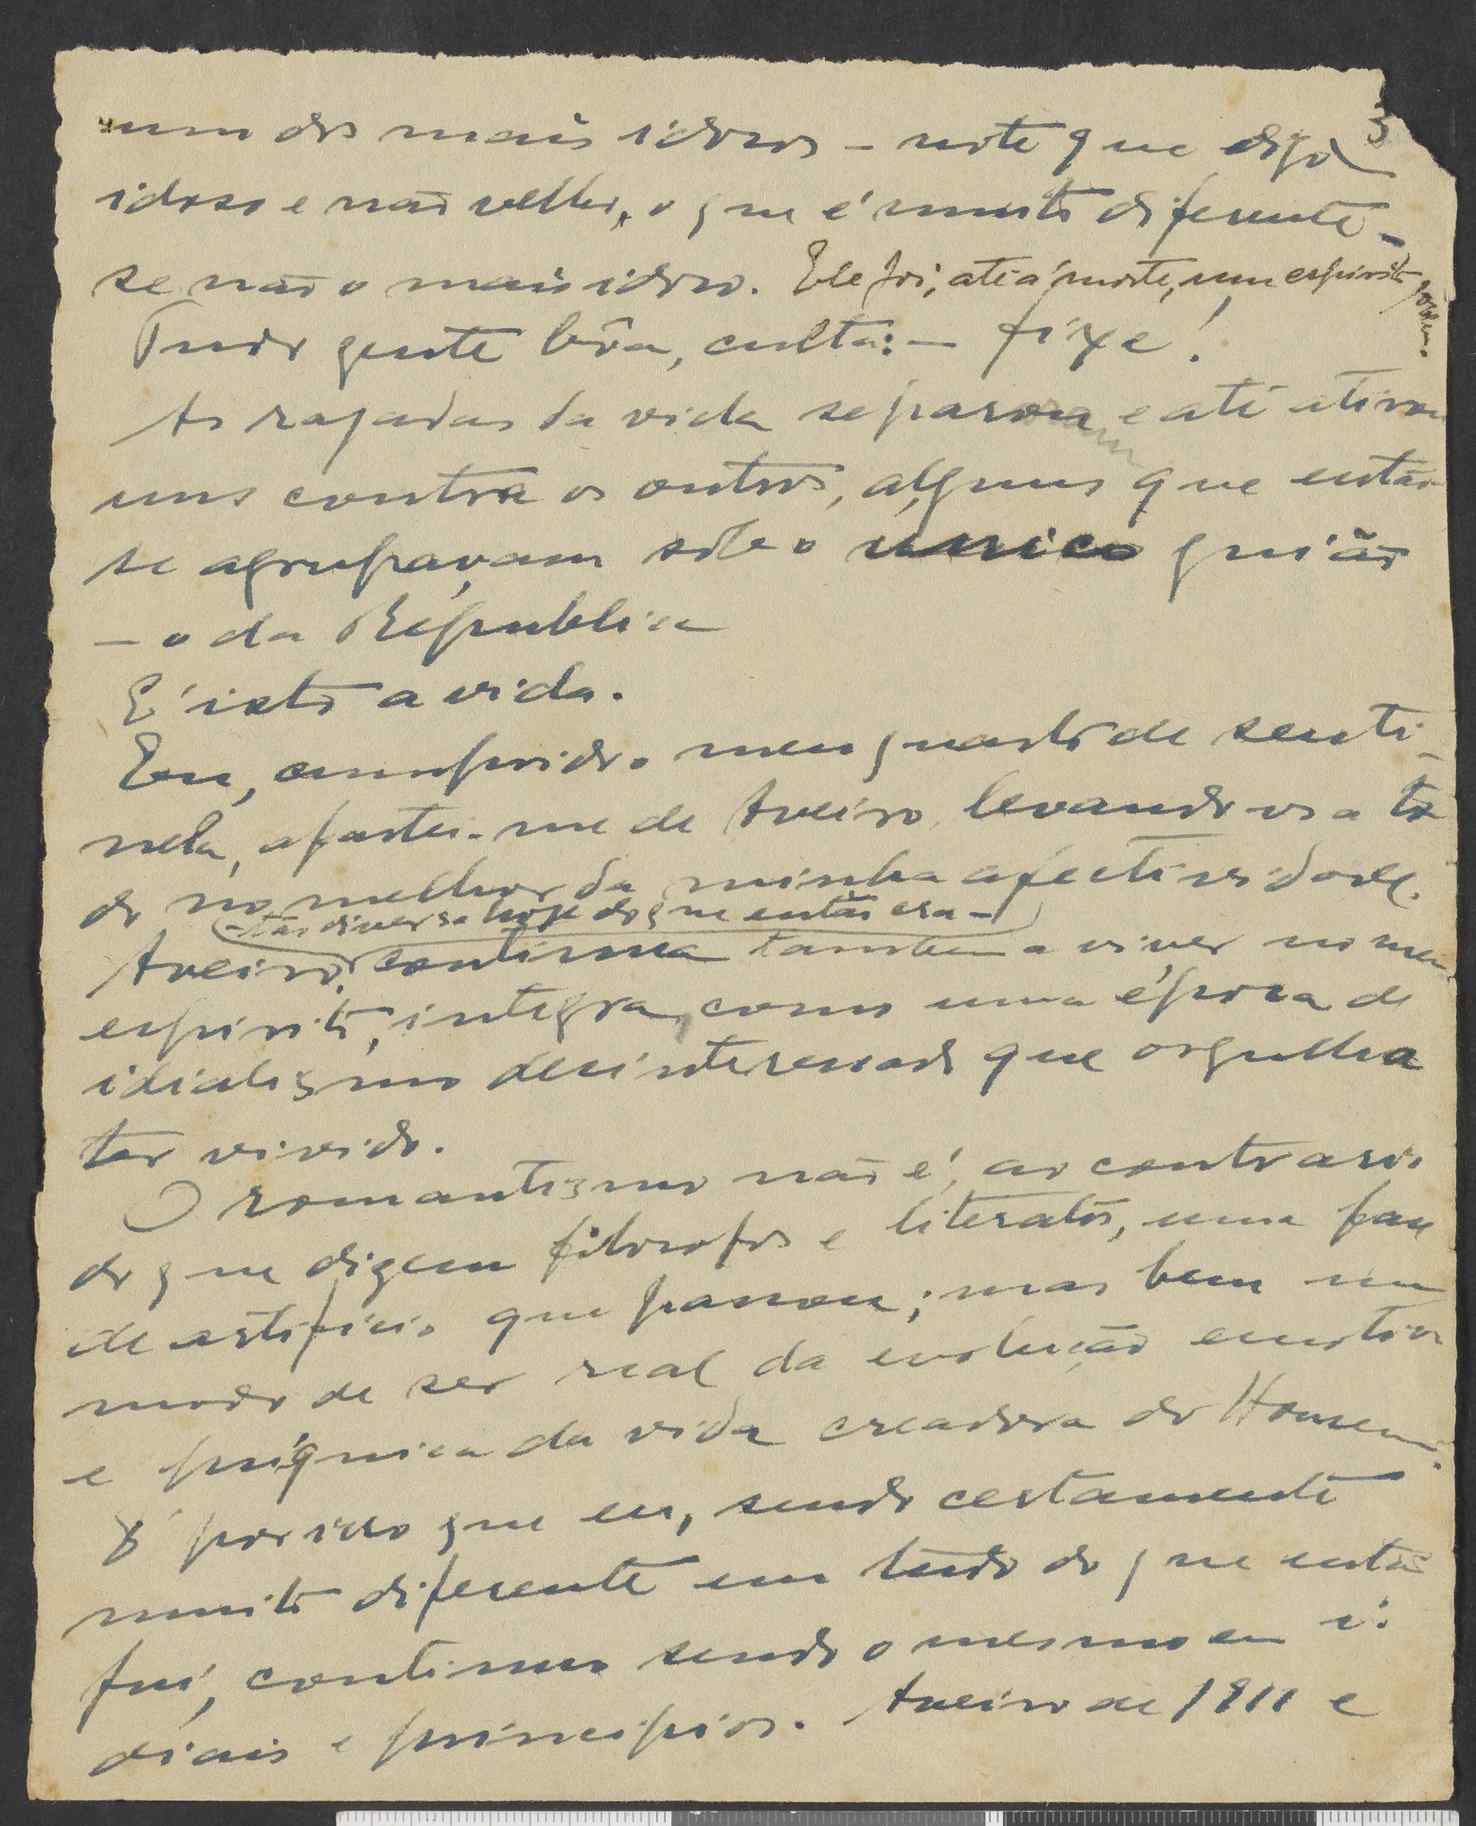 3
um dos mais idosos - note que digo
idoso e não velho, o que é muito diferente -
se não o mais idoso. Ele foi, até á morte, um espirito jovem.
Tudo gente bôa, culta: - fixe!
As rajadas da vida separou e até atirou
uns contra os outros, alguns que então
se agrupavam sob o único guião
- o da República
E' isto a vida.
Eu, cumprido o meu quarto de senti-
nela, afastei-me de Aveiro, levando-os a to-
do no melhor da minha afectividade.
- tão diversa hoje do que então era -
Aveiro, continua tambem a viver no meu
espirito, integra, como uma época de
idialismo desinteressado que orgulha
ter vivido.
O romantismo não é, ao contrario
do que dizem filosofos e literatos, uma fase
de artificio que passou; mas bem um
modo de ser real da evolução emotiva
e psíquica da vida creadora do Homem.
E' por isso que eu, sendo certamente
muito diferente em tudo do que então
fui, continuo sendo o mesmo em i-
diais e principios. Aveiro de 1911 e